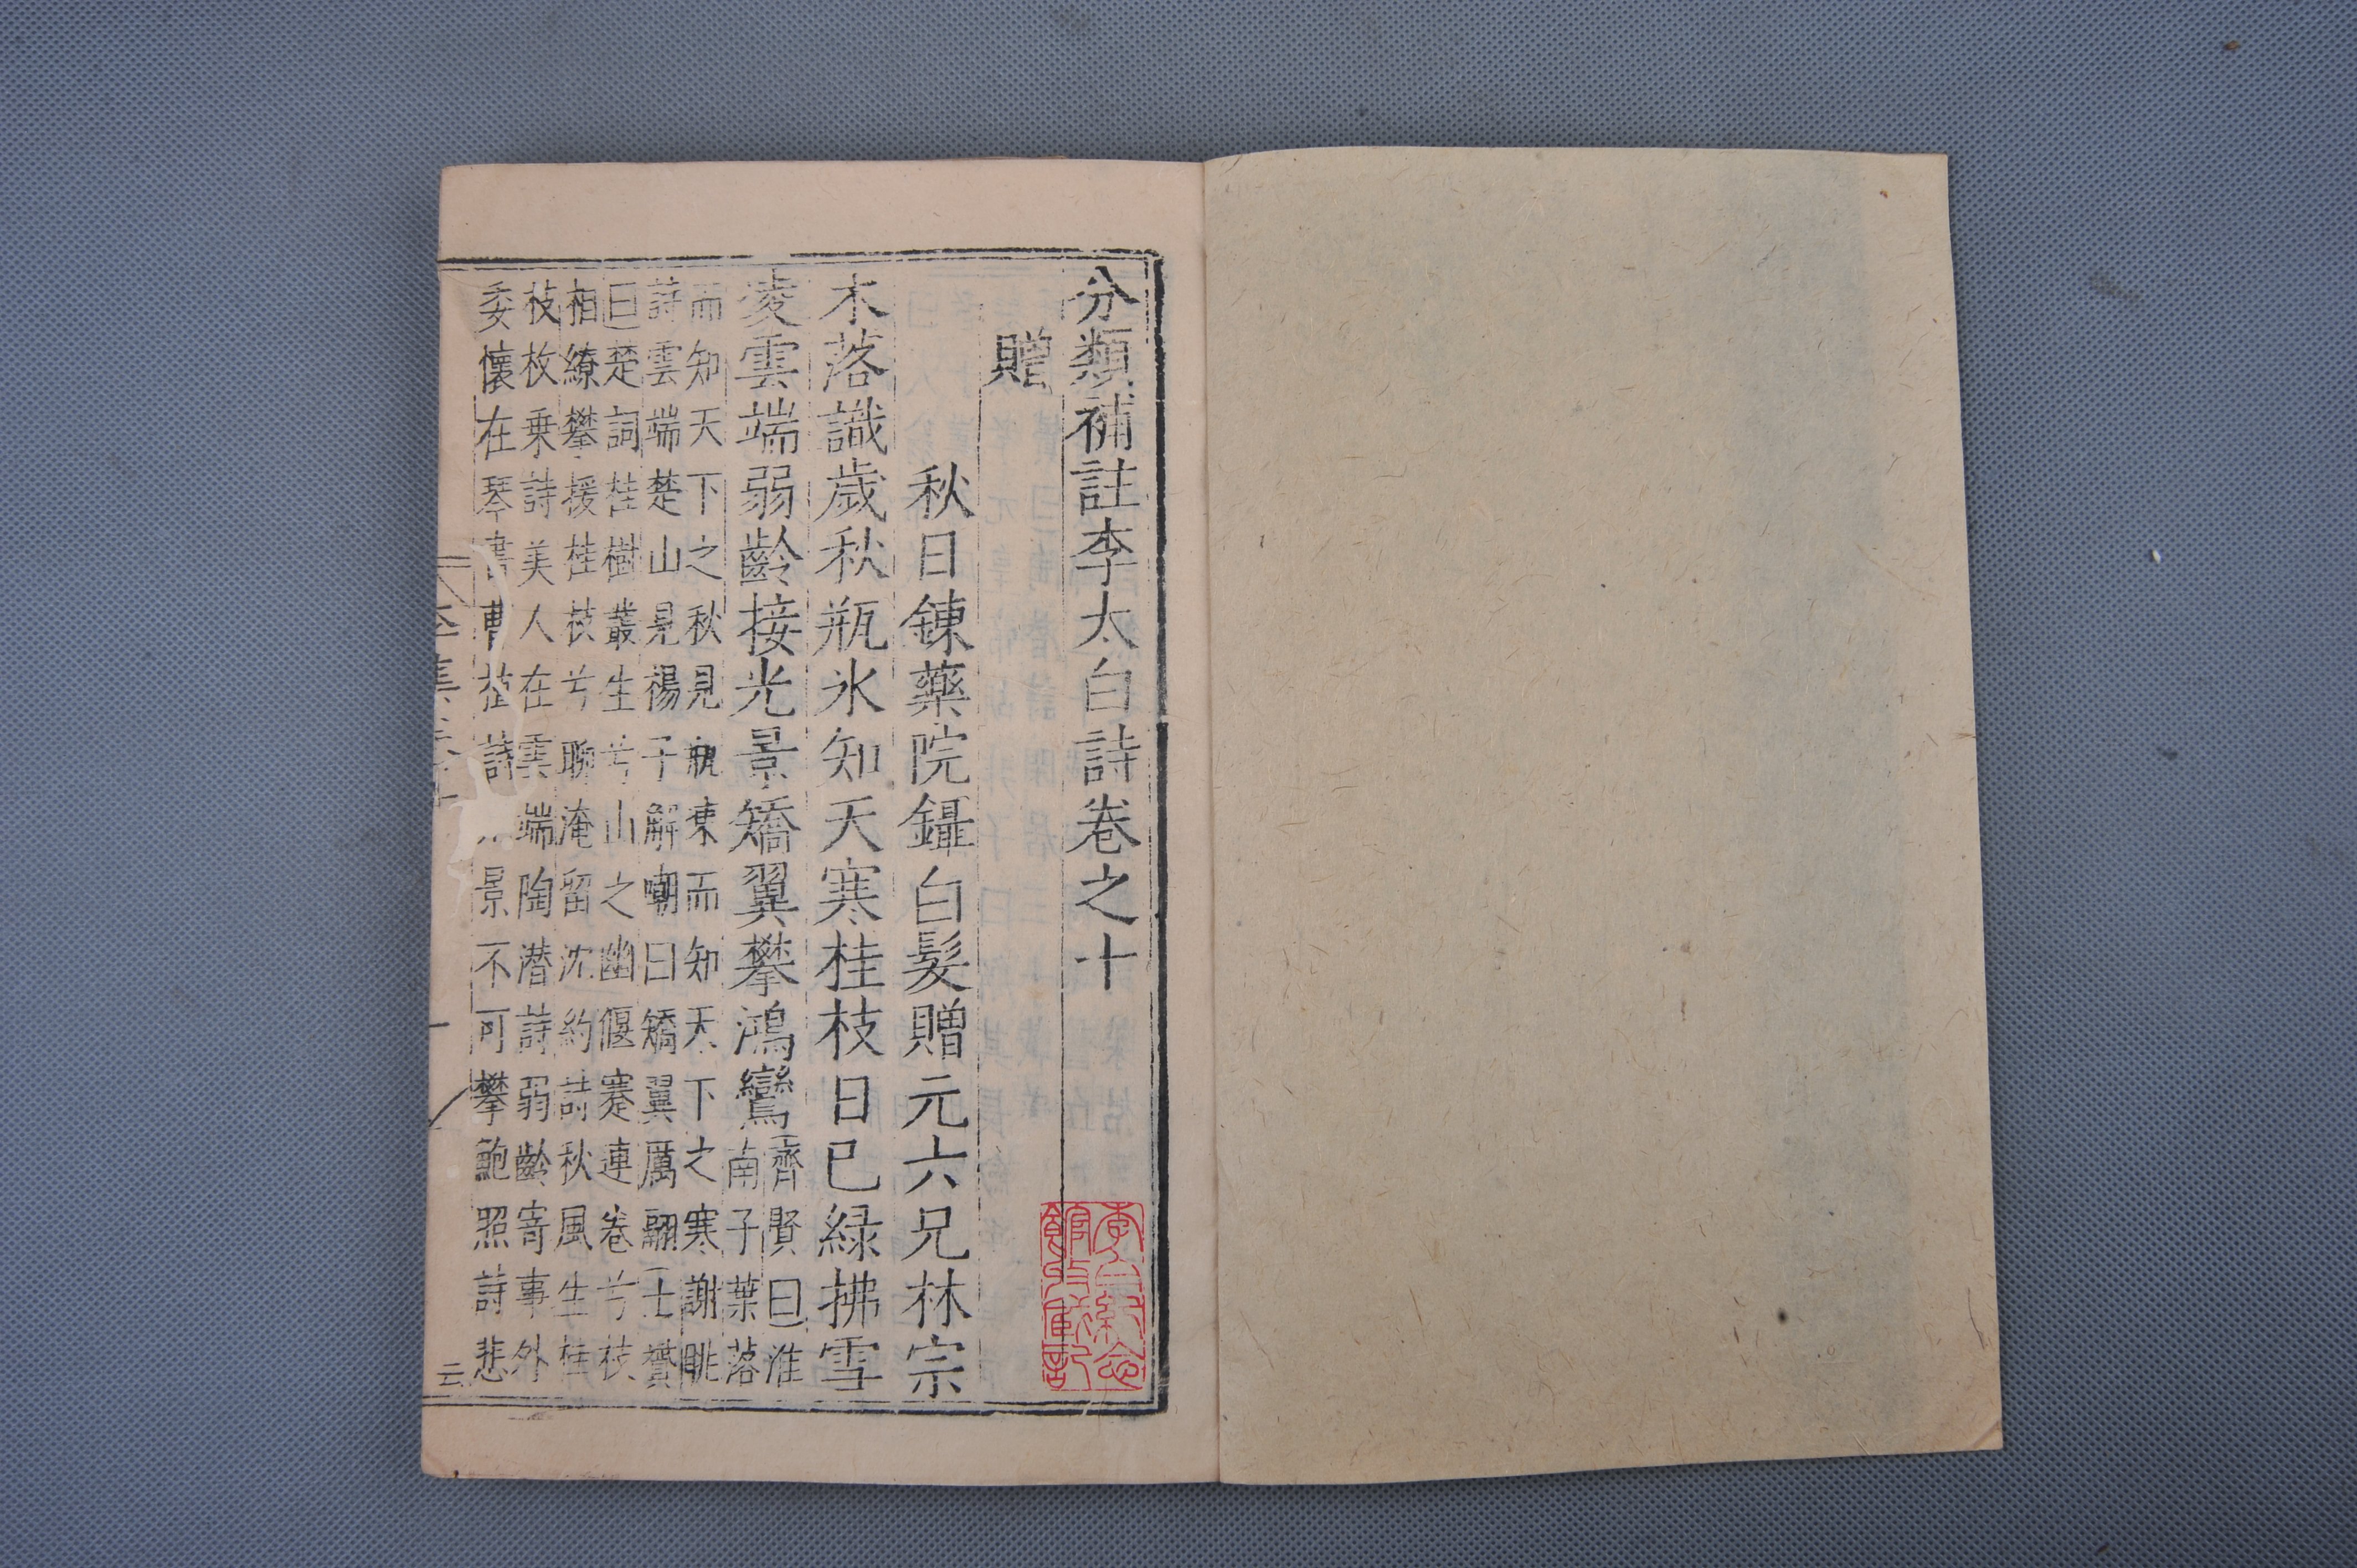 分類補註李太白詩卷之十
贈
秋日鍊藥院鑷白髮贈元六兄林宗
木落識歲秋瓶氷知天寒桂枝日已緑拂雪
凌雲端弱齡接光景矯翼攀鴻鸞
齊賢曰淮
南子葉落
而知天下之秋見瓶凍而知天下之寒謝朓
詩雲端楚山見楊子解嘲曰矯翼厲翮士贇
曰楚詞桂樹叢生兮山之幽偃蹇連卷兮枝
相繚攀援桂枝兮聊淹留沈約詩秋風生桂
枝枚乗詩美人在雲端陶潜詩弱齡寄事外
委懷在琴書曹植詩景不可攀鮑照詩悲
李白紀念
館收藏記